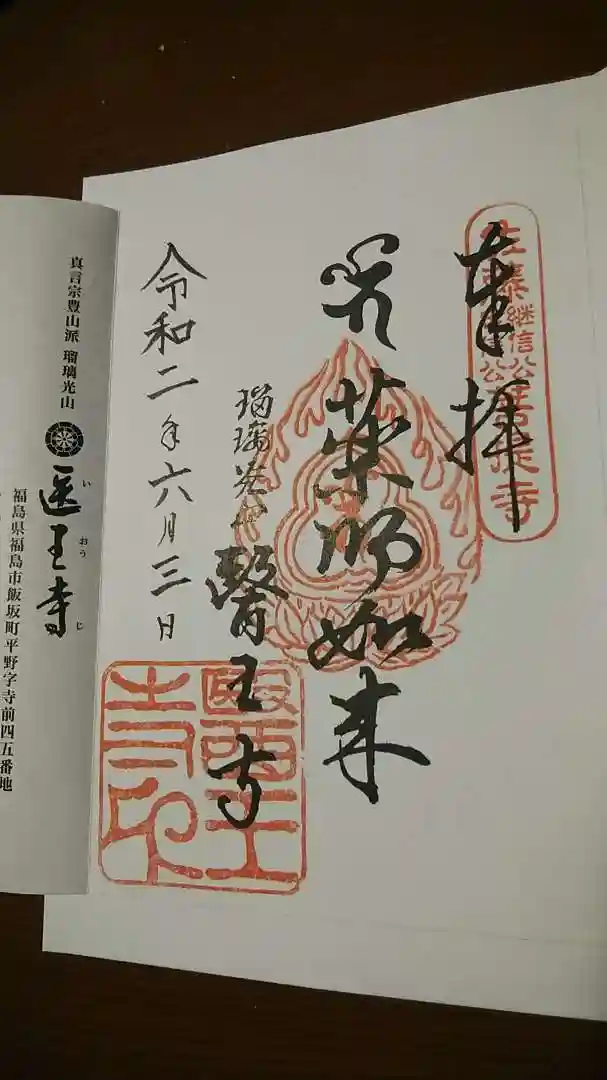 奉拝
継信公
薬師如来
瑠璃光山 醫王寺
令和二年六月三日
醫王寺印
真言宗豊山派 瑠璃光山
医王寺
いおうじ
福島県福島市飯坂町平野字寺前四五番地